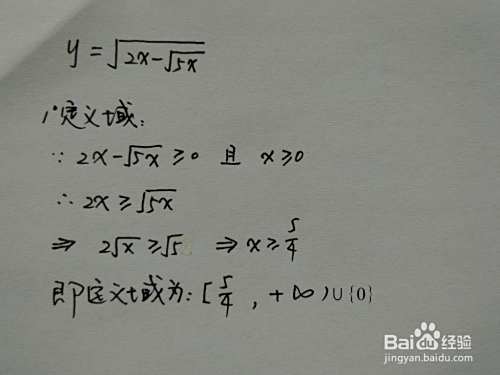 y=√(2x-√5x)
1°定义域:
∵ 2x-√5x ≥0 且 x≥0
∴ 2x≥√5x
⇒ 2√x ≥√5 ⇒ x≥5/4
即定义域为:[5/4, +∞)∪{0}
Baidu经验
jingyan.baidu.com